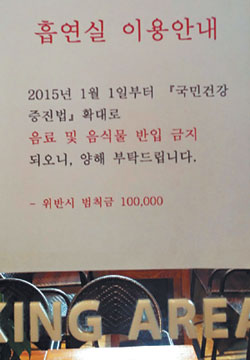 흡연실 이용안내
2015년 1월 1일부터 『국민건강
증진법』 확대로
음료 및 음식물 반입 금지
되오니, 양해 부탁드립니다.
- 위반시 범칙금 100,000
KING AREA